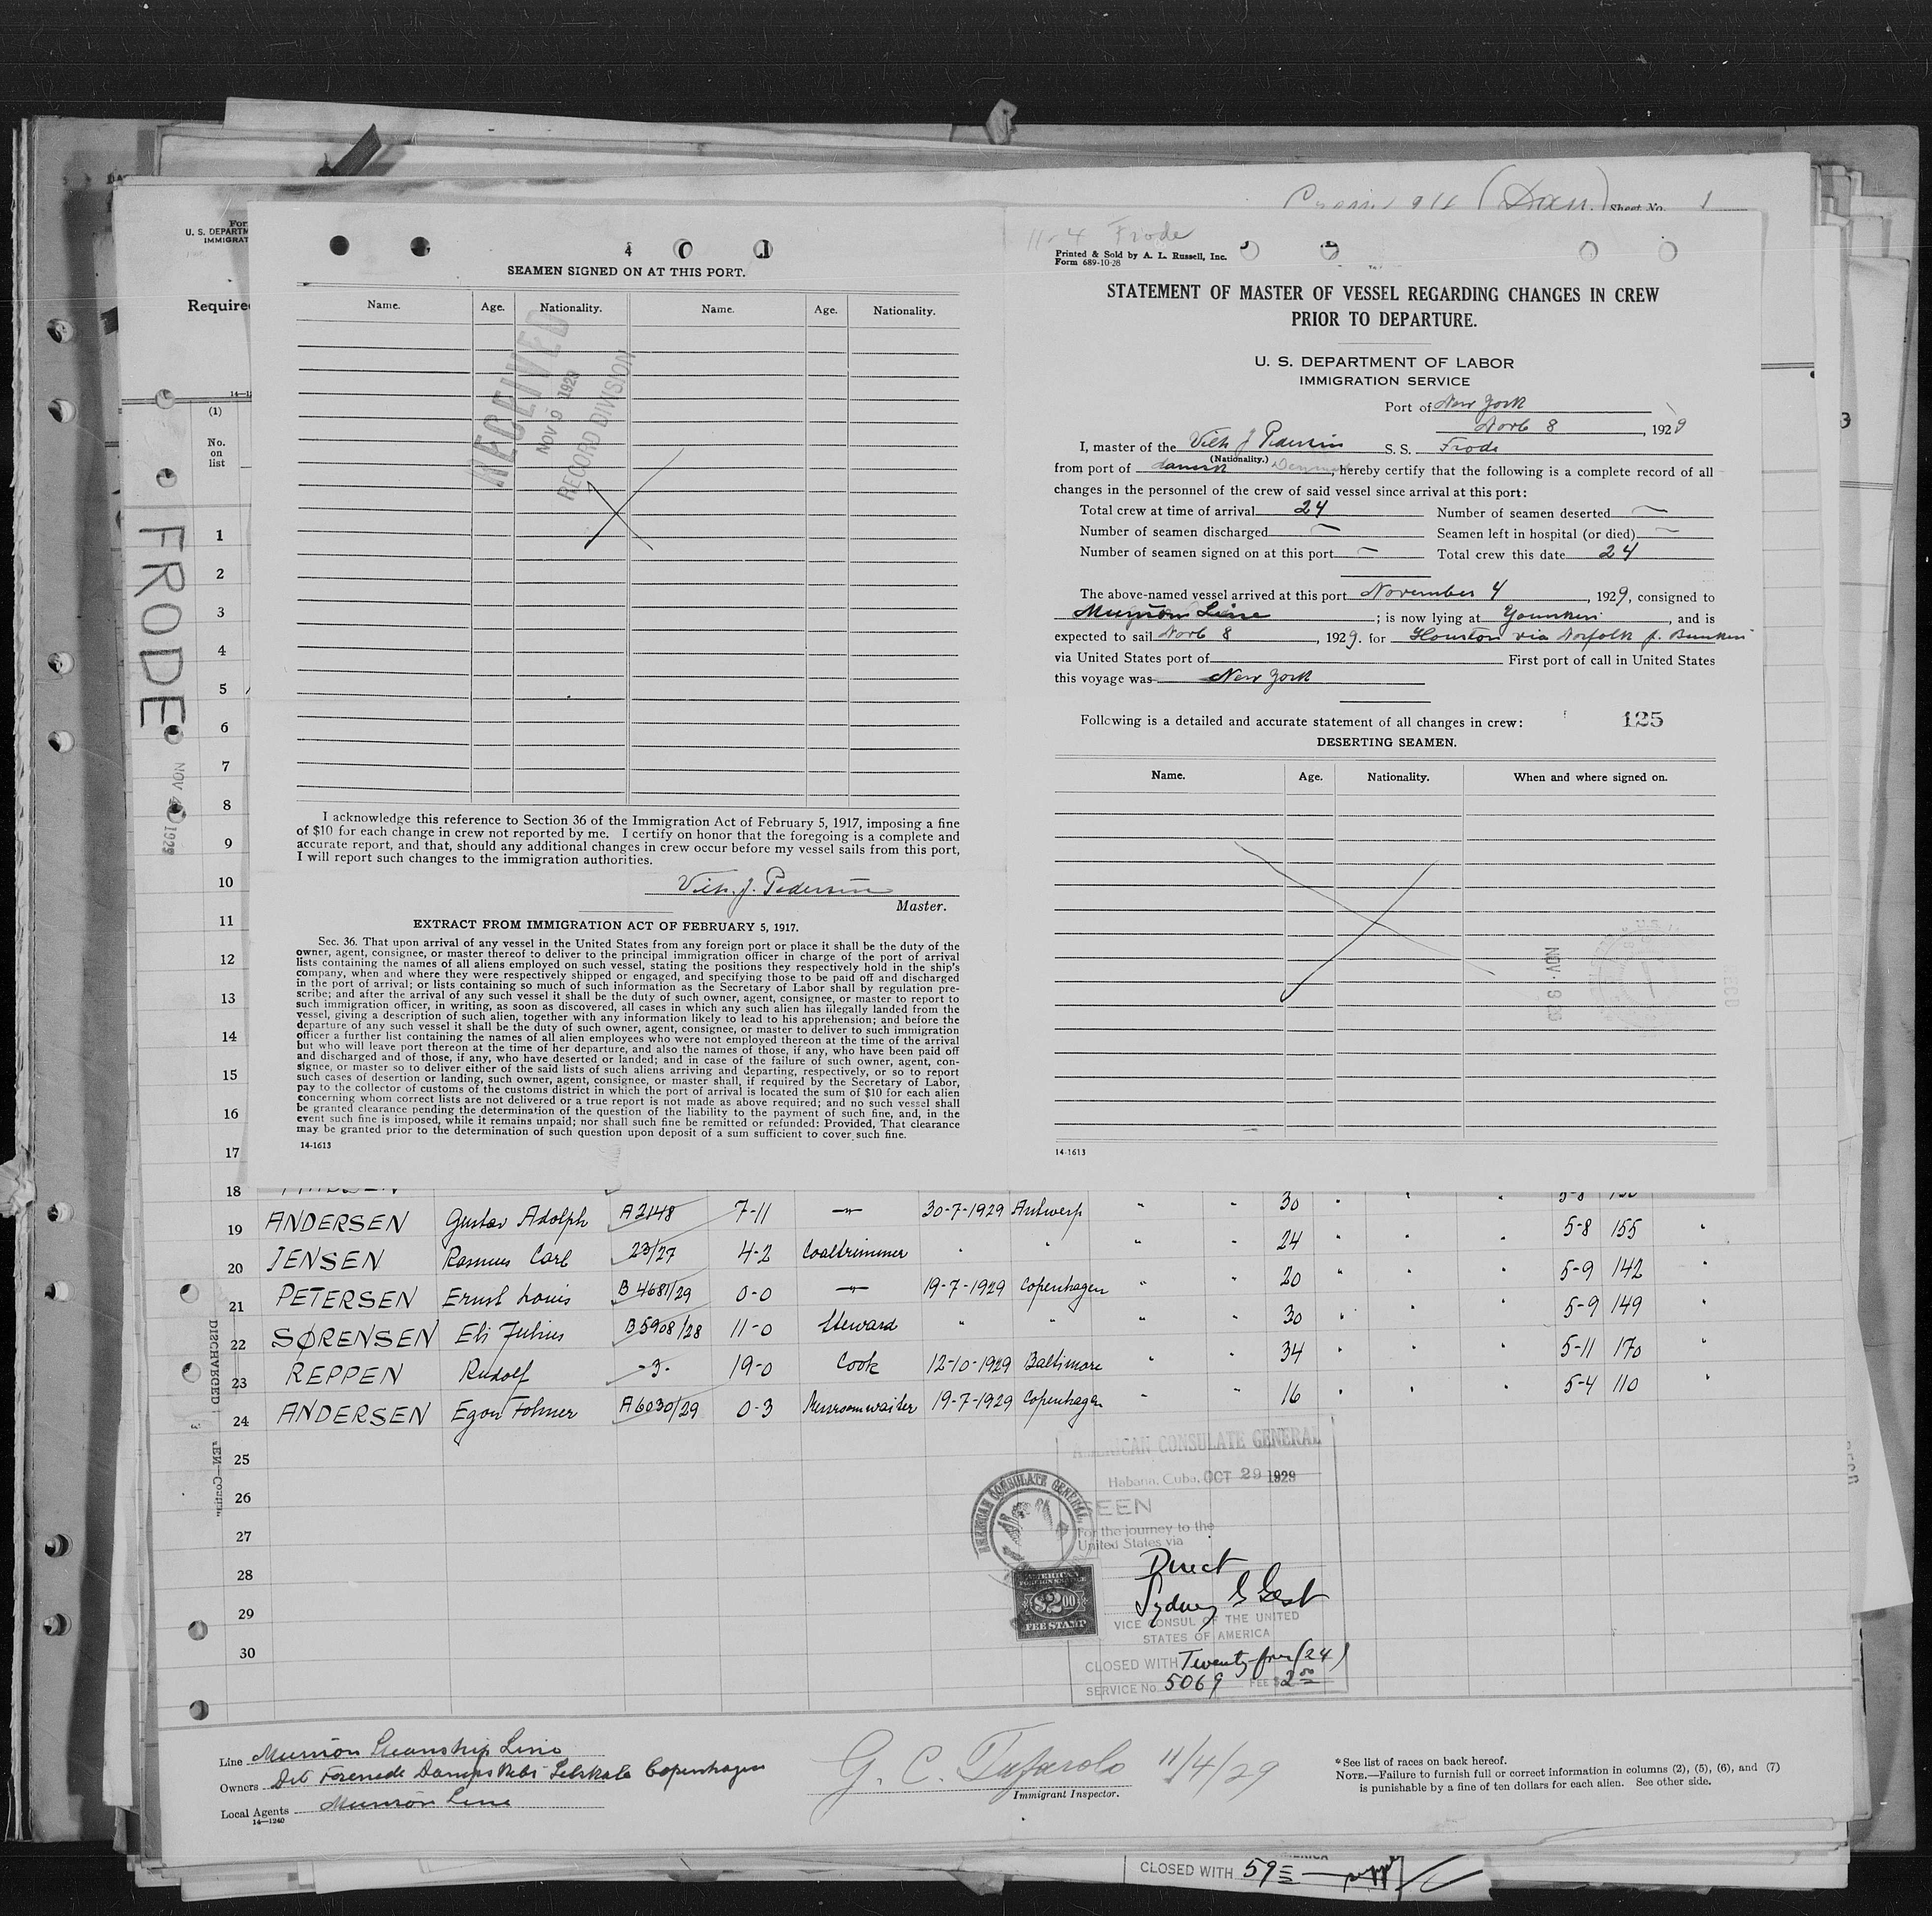 Sheet No. 1
(Dan.)
For
U. S. DEPARTM
IMMIGRAT
Required
14—12
(1)
No.
on
list
FRODE
NOV 4 1929
4 0 1
SEAMEN SIGNED ON AT THIS PORT.
Name. Age. Nationality. Name. Age. Nationality.
RECEIVED
NOV 9 1929
RECORD DIVISION
I acknowledge this reference to Section 36 of the Immigration Act of February 5, 1917, imposing a fine
of $10 for each change in crew not reported by me. I certify on honor that the foregoing is a complete and
accurate report, and that, should any additional changes in crew occur before my vessel sails from this port,
I will report such changes to the immigration authorities.
Vilh. J. Pedersen
Master.
EXTRACT FROM IMMIGRATION ACT OF FEBRUARY 5, 1917.
Sec. 36. That upon arrival of any vessel in the United States from any foreign port or place it shall be the duty of the
owner, agent, consignee, or master thereof to deliver to the principal immigration officer in charge of the port of arrival
lists containing the names of all aliens employed on such vessel, stating the positions they respectively hold in the ship's
company, when and where they were respectively shipped or engaged, and specifying those to be paid off and discharged
in the port of arrival; or lists containing so much of such information as the Secretary of Labor shall by regulation pre-
scribe; and after the arrival of any such vessel it shall be the duty of such owner, agent, consignee, or master to report to
such immigration officer, in writing, as soon as discovered, all cases in which any such alien has illegally landed from the
vessel, giving a description of such alien, together with any information likely to lead to his apprehension; and before the
departure of any such vessel it shall be the duty of such owner, agent, consignee, or master to deliver to such immigration
officer a further list containing the names of all alien employees who were not employed thereon at the time of the arrival
but who will leave port thereon at the time of her departure, and also the names of those, if any, who have been paid off
and discharged and of those, if any, who have deserted or landed; and in case of the failure of such owner, agent, con-
signee, or master so to deliver either of the said lists of such aliens arriving and departing, respectively, or so to report
such cases of desertion or landing, such owner, agent, consignee, or master shall, if required by the Secretary of Labor,
pay to the collector of customs of the customs district in which the port of arrival is located the sum of $10 for each alien
concerning whom correct lists are not delivered or a true report is not made as above required; and no such vessel shall
be granted clearance pending the determination of the question of the liability to the payment of such fine, and, in the
event such fine is imposed, while it remains unpaid; nor shall such fine be remitted or refunded: Provided, That clearance
may be granted prior to the determination of such question upon deposit of a sum sufficient to cover such fine.
14-1613
11-4 Frode
Printed & Sold by A. L. Russell, Inc.
Form 689-10-28
STATEMENT OF MASTER OF VESSEL REGARDING CHANGES IN CREW
PRIOR TO DEPARTURE.
U. S. DEPARTMENT OF LABOR
IMMIGRATION SERVICE
Port of New York
Novb 8, 1929
I, master of the Vilh J Pedersen S. S. Frode
(Nationality.)
from port of dansk Denmark, hereby certify that the following is a complete record of all
changes in the personnel of the crew of said vessel since arrival at this port:
Total crew at time of arrival 24 Number of seamen deserted —
Number of seamen discharged — Seamen left in hospital (or died) —
Number of seamen signed on at this port — Total crew this date 24
The above-named vessel arrived at this port November 4, 1929, consigned to
Munson Line; is now lying at Yonkers, and is
expected to sail Novb 8, 1929. for Houston via Norfolk f. Bunkers
via United States port of First port of call in United States
this voyage was New York
Following is a detailed and accurate statement of all changes in crew: 125
DESERTING SEAMEN.
Name. Age. Nationality. When and where signed on.
NOV. 9
14-1613
1
2
3
4
5
6
7
8
9
10
11
12
13
14
15
16
17
18
19 ANDERSEN Gustav Adolph A2148 7-11 —"— 30-7-1929 Antwerp " " 30 " " " 5-8 155 "
20 JENSEN Rasmus Carl 23/27 4-2 Coaltrimmer " " " " 24 " " " 5-9 142 "
21 PETERSEN Ernst Louis B4681/29 0-0 —"— 19-7-1929 Copenhagen " " 20 " " " 5-9 149 "
22 SØRENSEN Eli Julius B5908/28 11-0 Steward " " " " 30 " " " 5-11 170 "
23 REPPEN Rudolf -3- 19-0 Cook 12-10-1929 Baltimore " " 34 " " " 5-4 110 "
24 ANDERSEN Egon Folmer A6030/29 0-3 Messroomwaiter 19-7-1929 Copenhagen " " 16 " " "
25
26
27
28
29
30
DISCHARGED
EN—Contin.
AMERICAN CONSULATE GENERAL
Habana, Cuba, OCT 29 1929
SEEN
For the journey to the
United States via
Direct
Sydney G Gest
VICE CONSUL OF THE UNITED
STATES OF AMERICA
CLOSED WITH Twenty-four (24)
SERVICE No. 5069 FEE $2.00
AMERICAN CONSULATE GENERAL
AMERICAN
FOREIGN SERVICE
$2.00
FEE STAMP
Line Munson Steamship Line
Owners Det Forenede Dampskibs Selskab Copenhagen
Local Agents Munson Line
14—1240
G. C. Tufarolo 11/4/29
Immigrant Inspector.
*See list of races on back hereof.
NOTE.—Failure to furnish full or correct information in columns (2), (5), (6), and (7)
is punishable by a fine of ten dollars for each alien. See other side.
CLOSED WITH 59